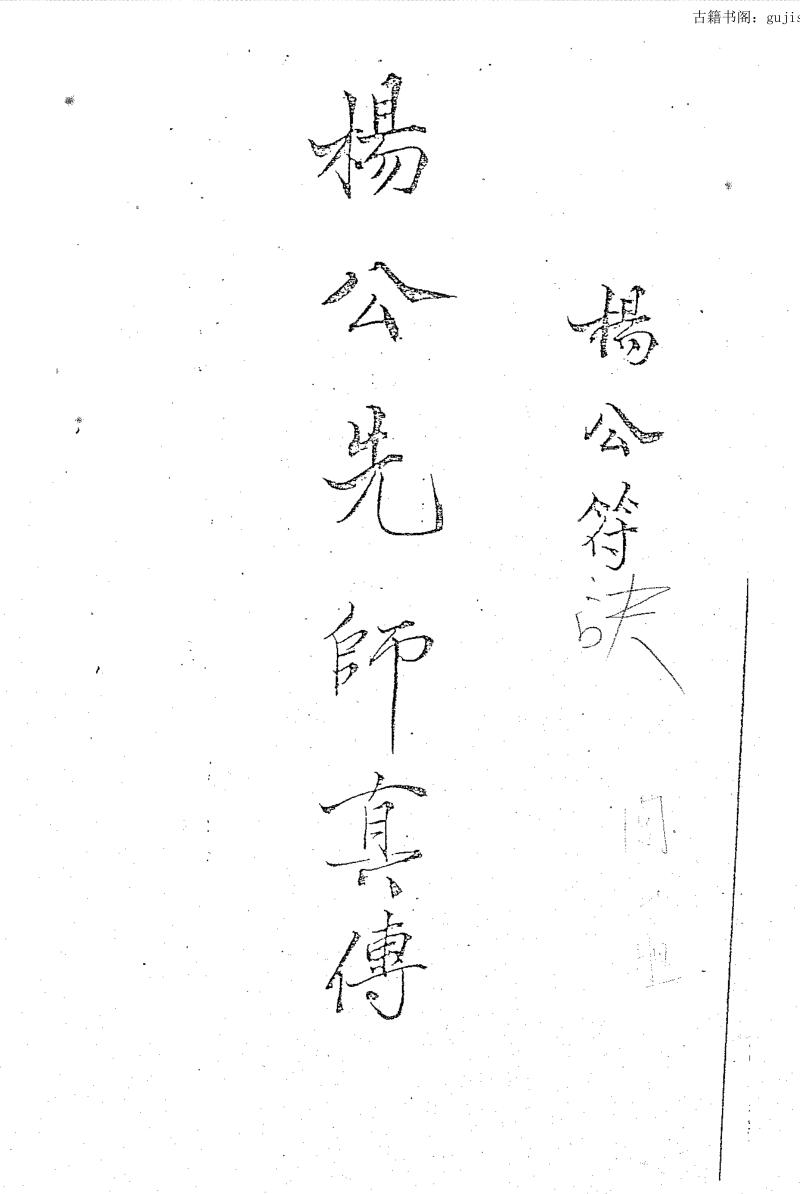 古籍书阁：gujis
楊公符訣
楊公先師真傳